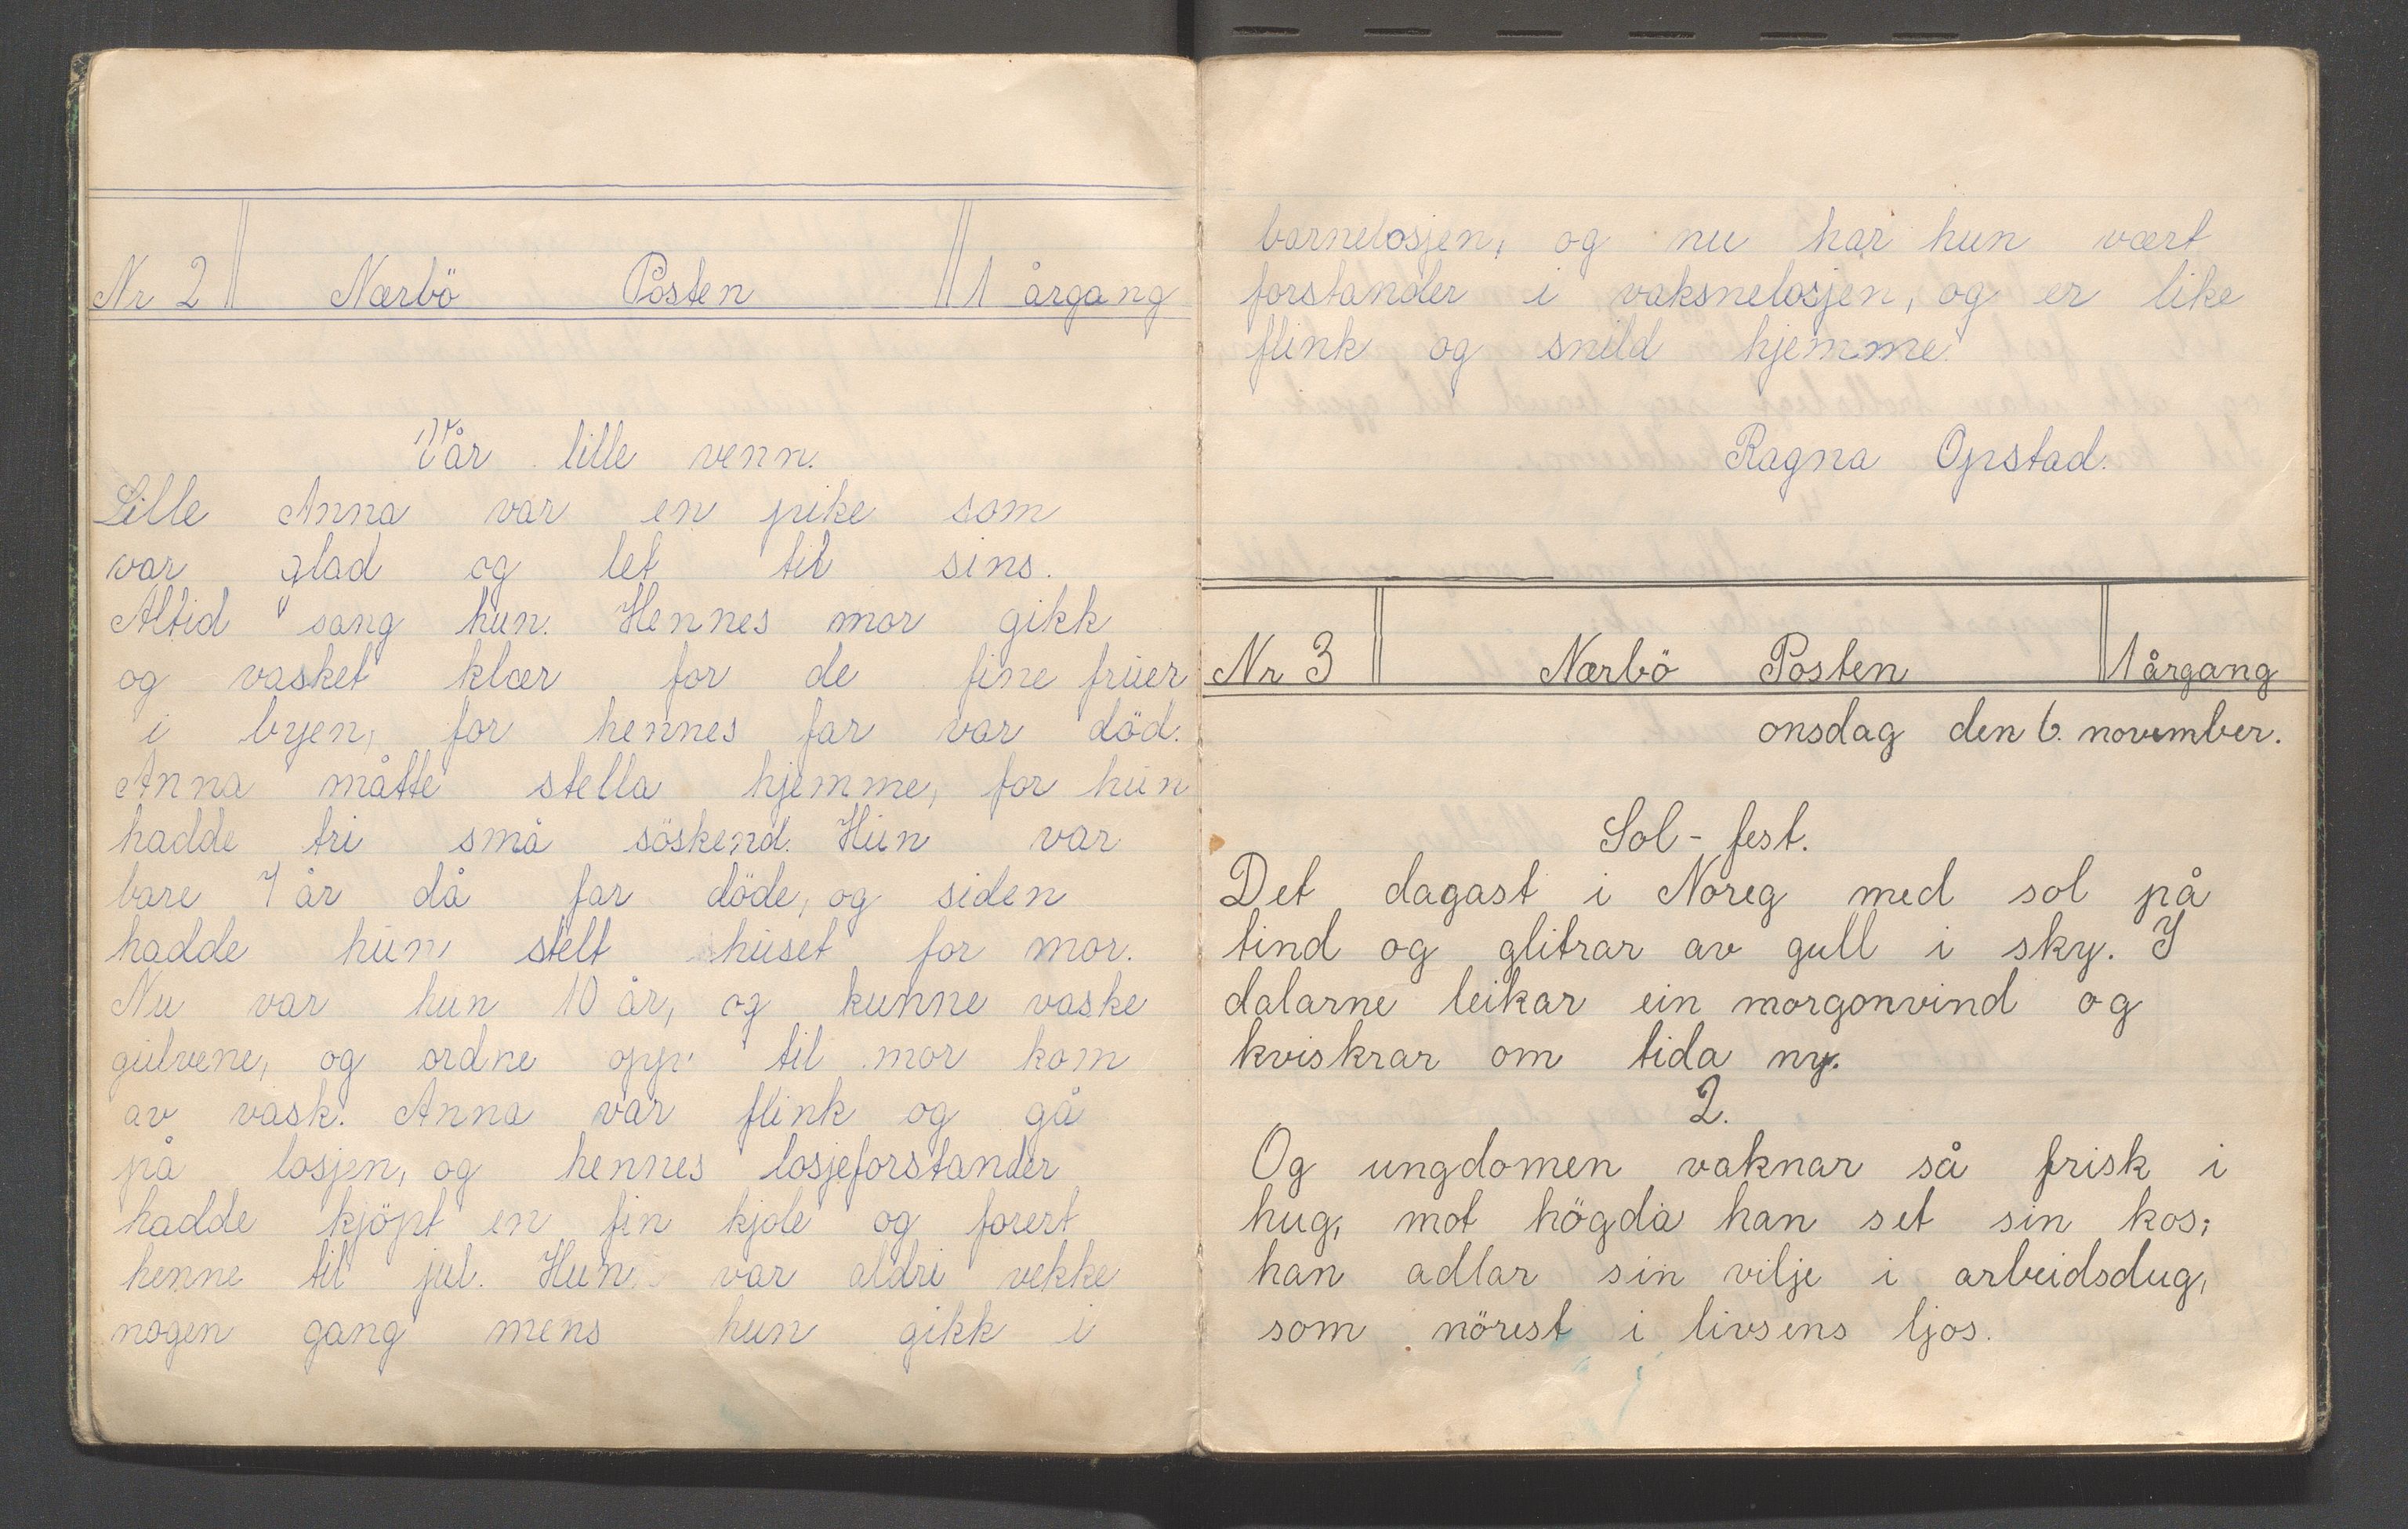 Nr 2 Nærbö Posten 1 årgang
Vår lille venn.
Lille Anna var en pike som
var glad og let til sins.
Altid sang hun. Hennes mor gikk
og vasket klær for de fine fruer
i byen, for hennes far var död.
Anna måtte stella hjemme, for hun
hadde tri små söskend. Hun var
bare 7 år då far döde, og siden
hadde hun stelt huset for mor.
Nu var hun 10 år, og kunne vaske
gulvene, og ordne opp til mor kom
av vask. Anna var flink og gå
på losjen, og hennes losjeforstander
hadde kjöpt en fin kjole og forert
henne til jul. Hun var aldri vekke
nogen gang mens hun gikk i
barnelosjen, og nu har hun vært
forstander i vaksnelosjen, og er like
flink og snild hjemme.
Ragna Opstad.
Nr 3 Nærbö Posten 1 årgang
onsdag den 6. november.
Sol-fest.
Det dagast i Noreg med sol på
tind og glitrar av gull i sky. I
dalarne leikar ein morgonvind og
kviskrar om tida ny.
2.
Og ungdomen vaknar så frisk i
hug, mot högda han set sin kos;
han adlar sin vilje i arbeidsdug,
som nörest i livsens ljos.